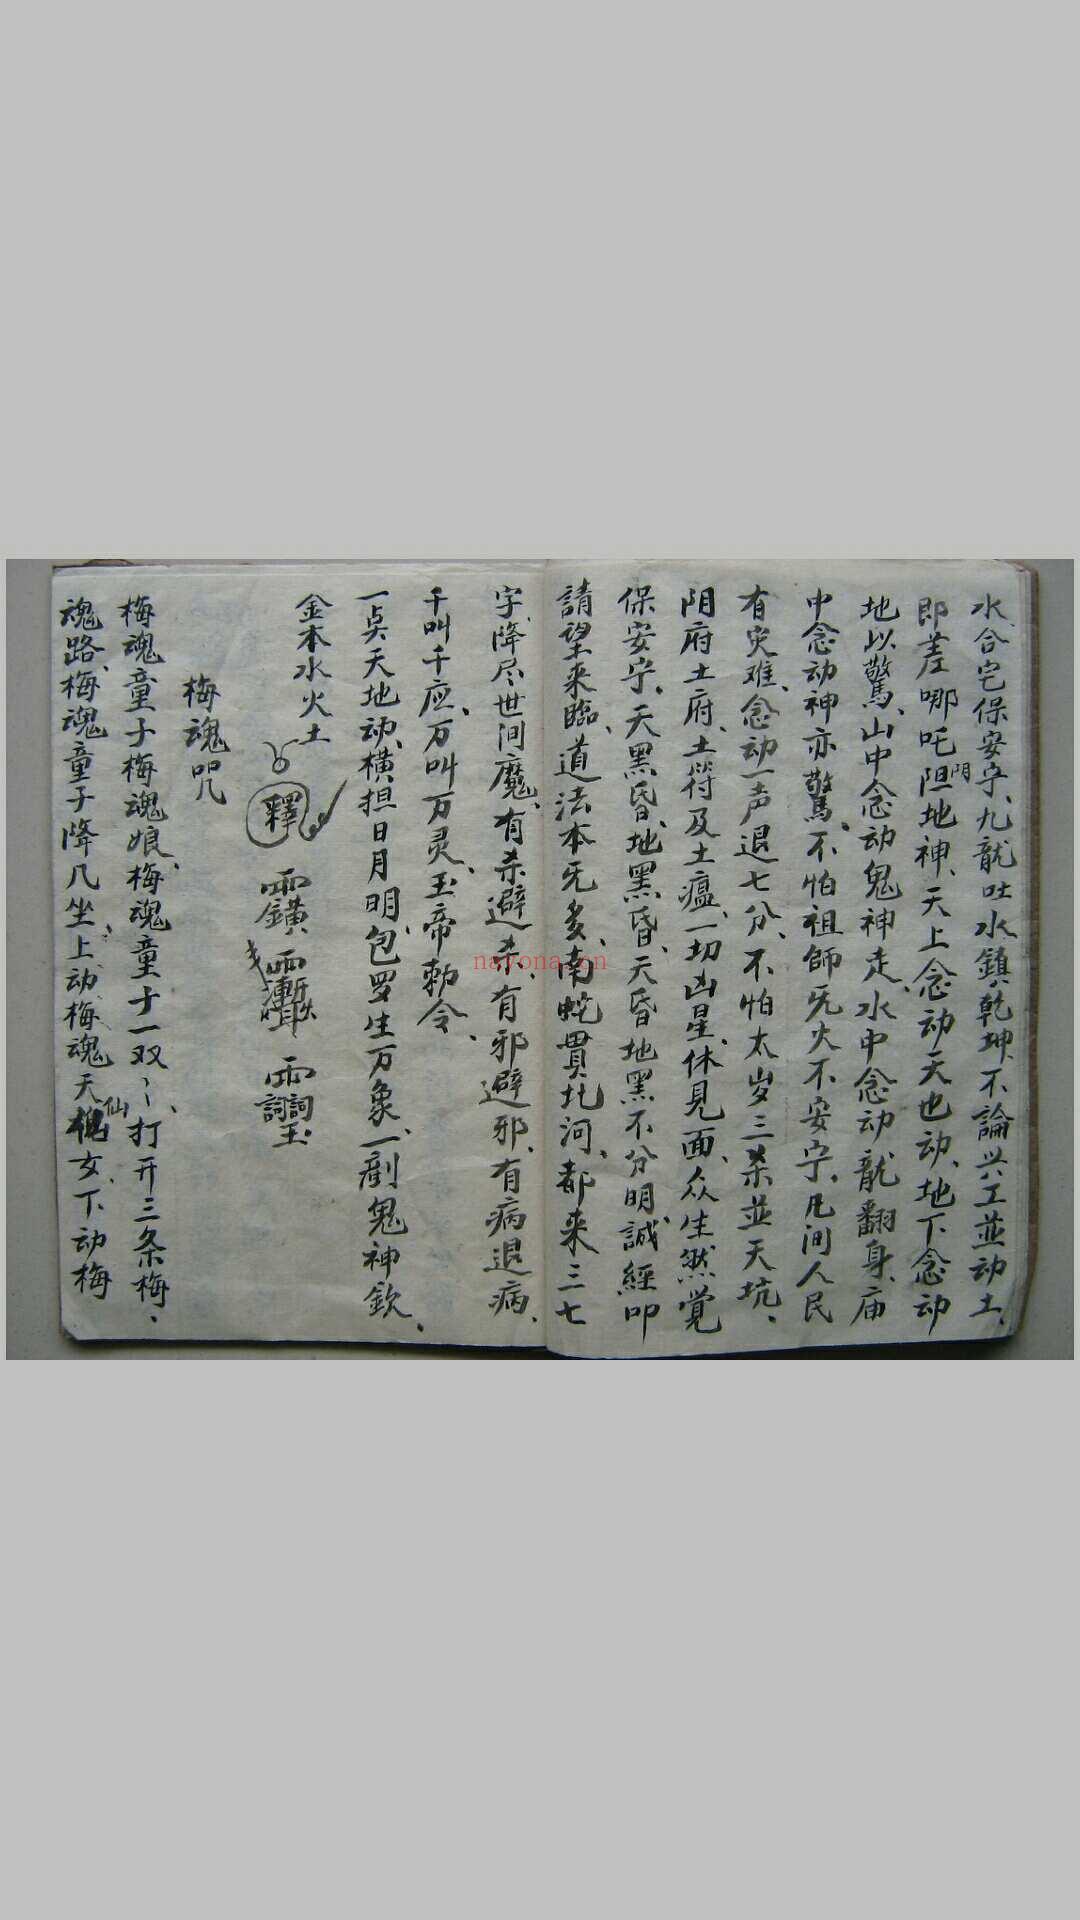 水、合宅保安宁、九龍吐水鎮乾坤、不論兴工並动土、
即差哪吒阻門地神、天上念动天也动、地下念动
地以驚、山中念动鬼神走、水中念动龍翻身、庙
中念动神亦驚、不怕祖師旡火不安宁、凡间人民
有灾难、念动一声退七分、不怕太岁三杀並天坑、
阴府土府、土符及土瘟、一切凶星、休見面、众生然覚
保安宁、天黑昏、地黑昏、天昏地黑不分明、誠經叩
請望来臨、道法本旡多、南蛇貫北河、都来三七
字、降尽世间魔、有杀避杀、有邪避邪、有病退病、
千叫千应、万叫万灵、玉帝勅令、
一炁天地动、横担日月明、包罗生万象、一劄鬼神欽、
金本水火土
釋
梅魂咒
梅魂童子梅魂娘、梅魂童子一双々、打开三条梅、
魂路、梅魂童子降几坐、上动梅魂天仙女、下动梅
nayona.cn